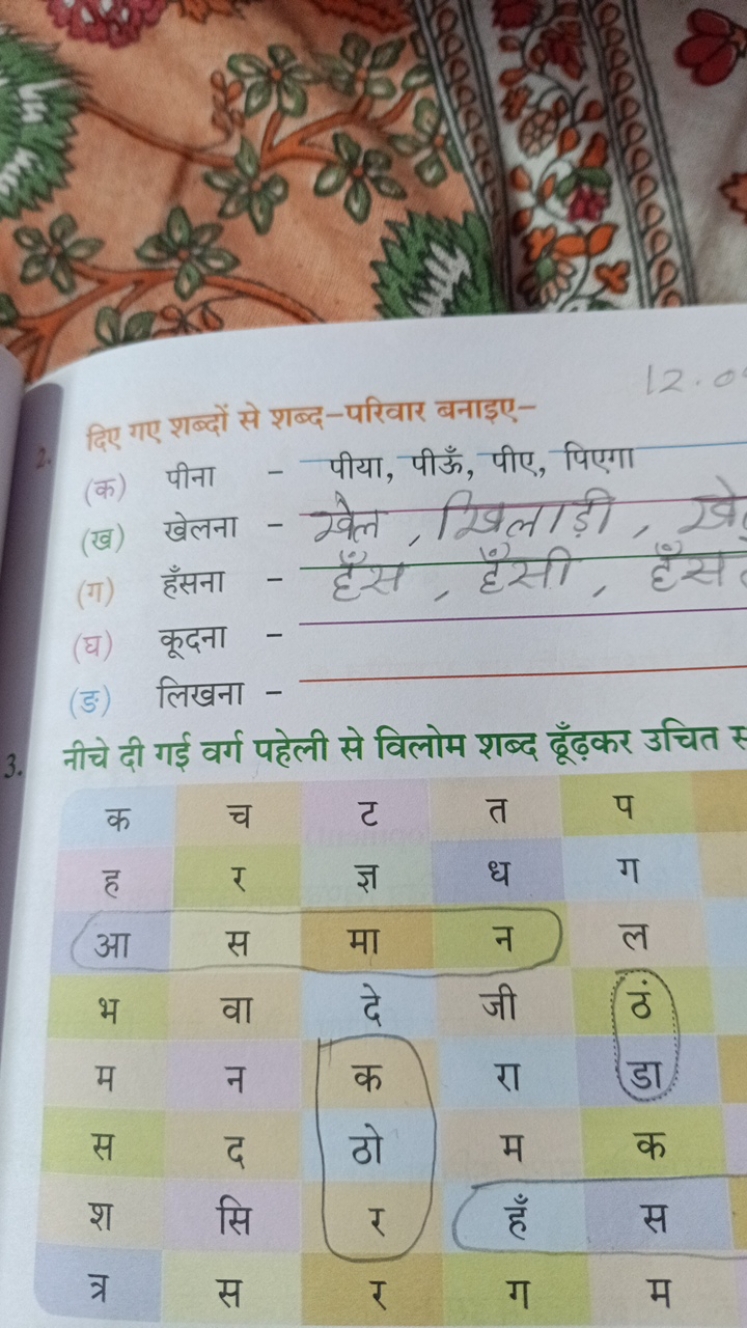 12.0
2. दिए गए शब्दों से शब्द-परिवार बनाइए-
(क) पीना - पीया, पीऊँ, पीए, पिएगा
(ख) खेलना - खेल, खिलाड़ी, खे
(ग) हँसना - हँस, हँसी, हँस
(घ) कूदना -
(ङ) लिखना -
3. नीचे दी गई वर्ग पहेली से विलोम शब्द ढूँढ़कर उचित
क च ट त प
ह र ज्ञ ध ग
आ स मा न ल
भ वा दे जी ठं
म न क रा डा
स द ठो म क
श सि र हँ स
त्र स र ग म